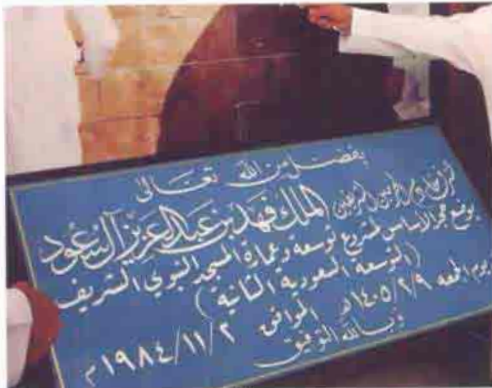 بفضل من الله تعالى
تشرف خادم الحرمين الشريفين الملك فهد بن عبد العزيز آل سعود
بوضع حجر الأساس لمشروع توسعة وعمارة المسجد النبوي الشريف
(التوسعة السعودية الثانية)
يوم الجمعة ١٤٠٥/٢/٩هـ الموافق ١٩٨٤/١١/٢م
وبالله التوفيق